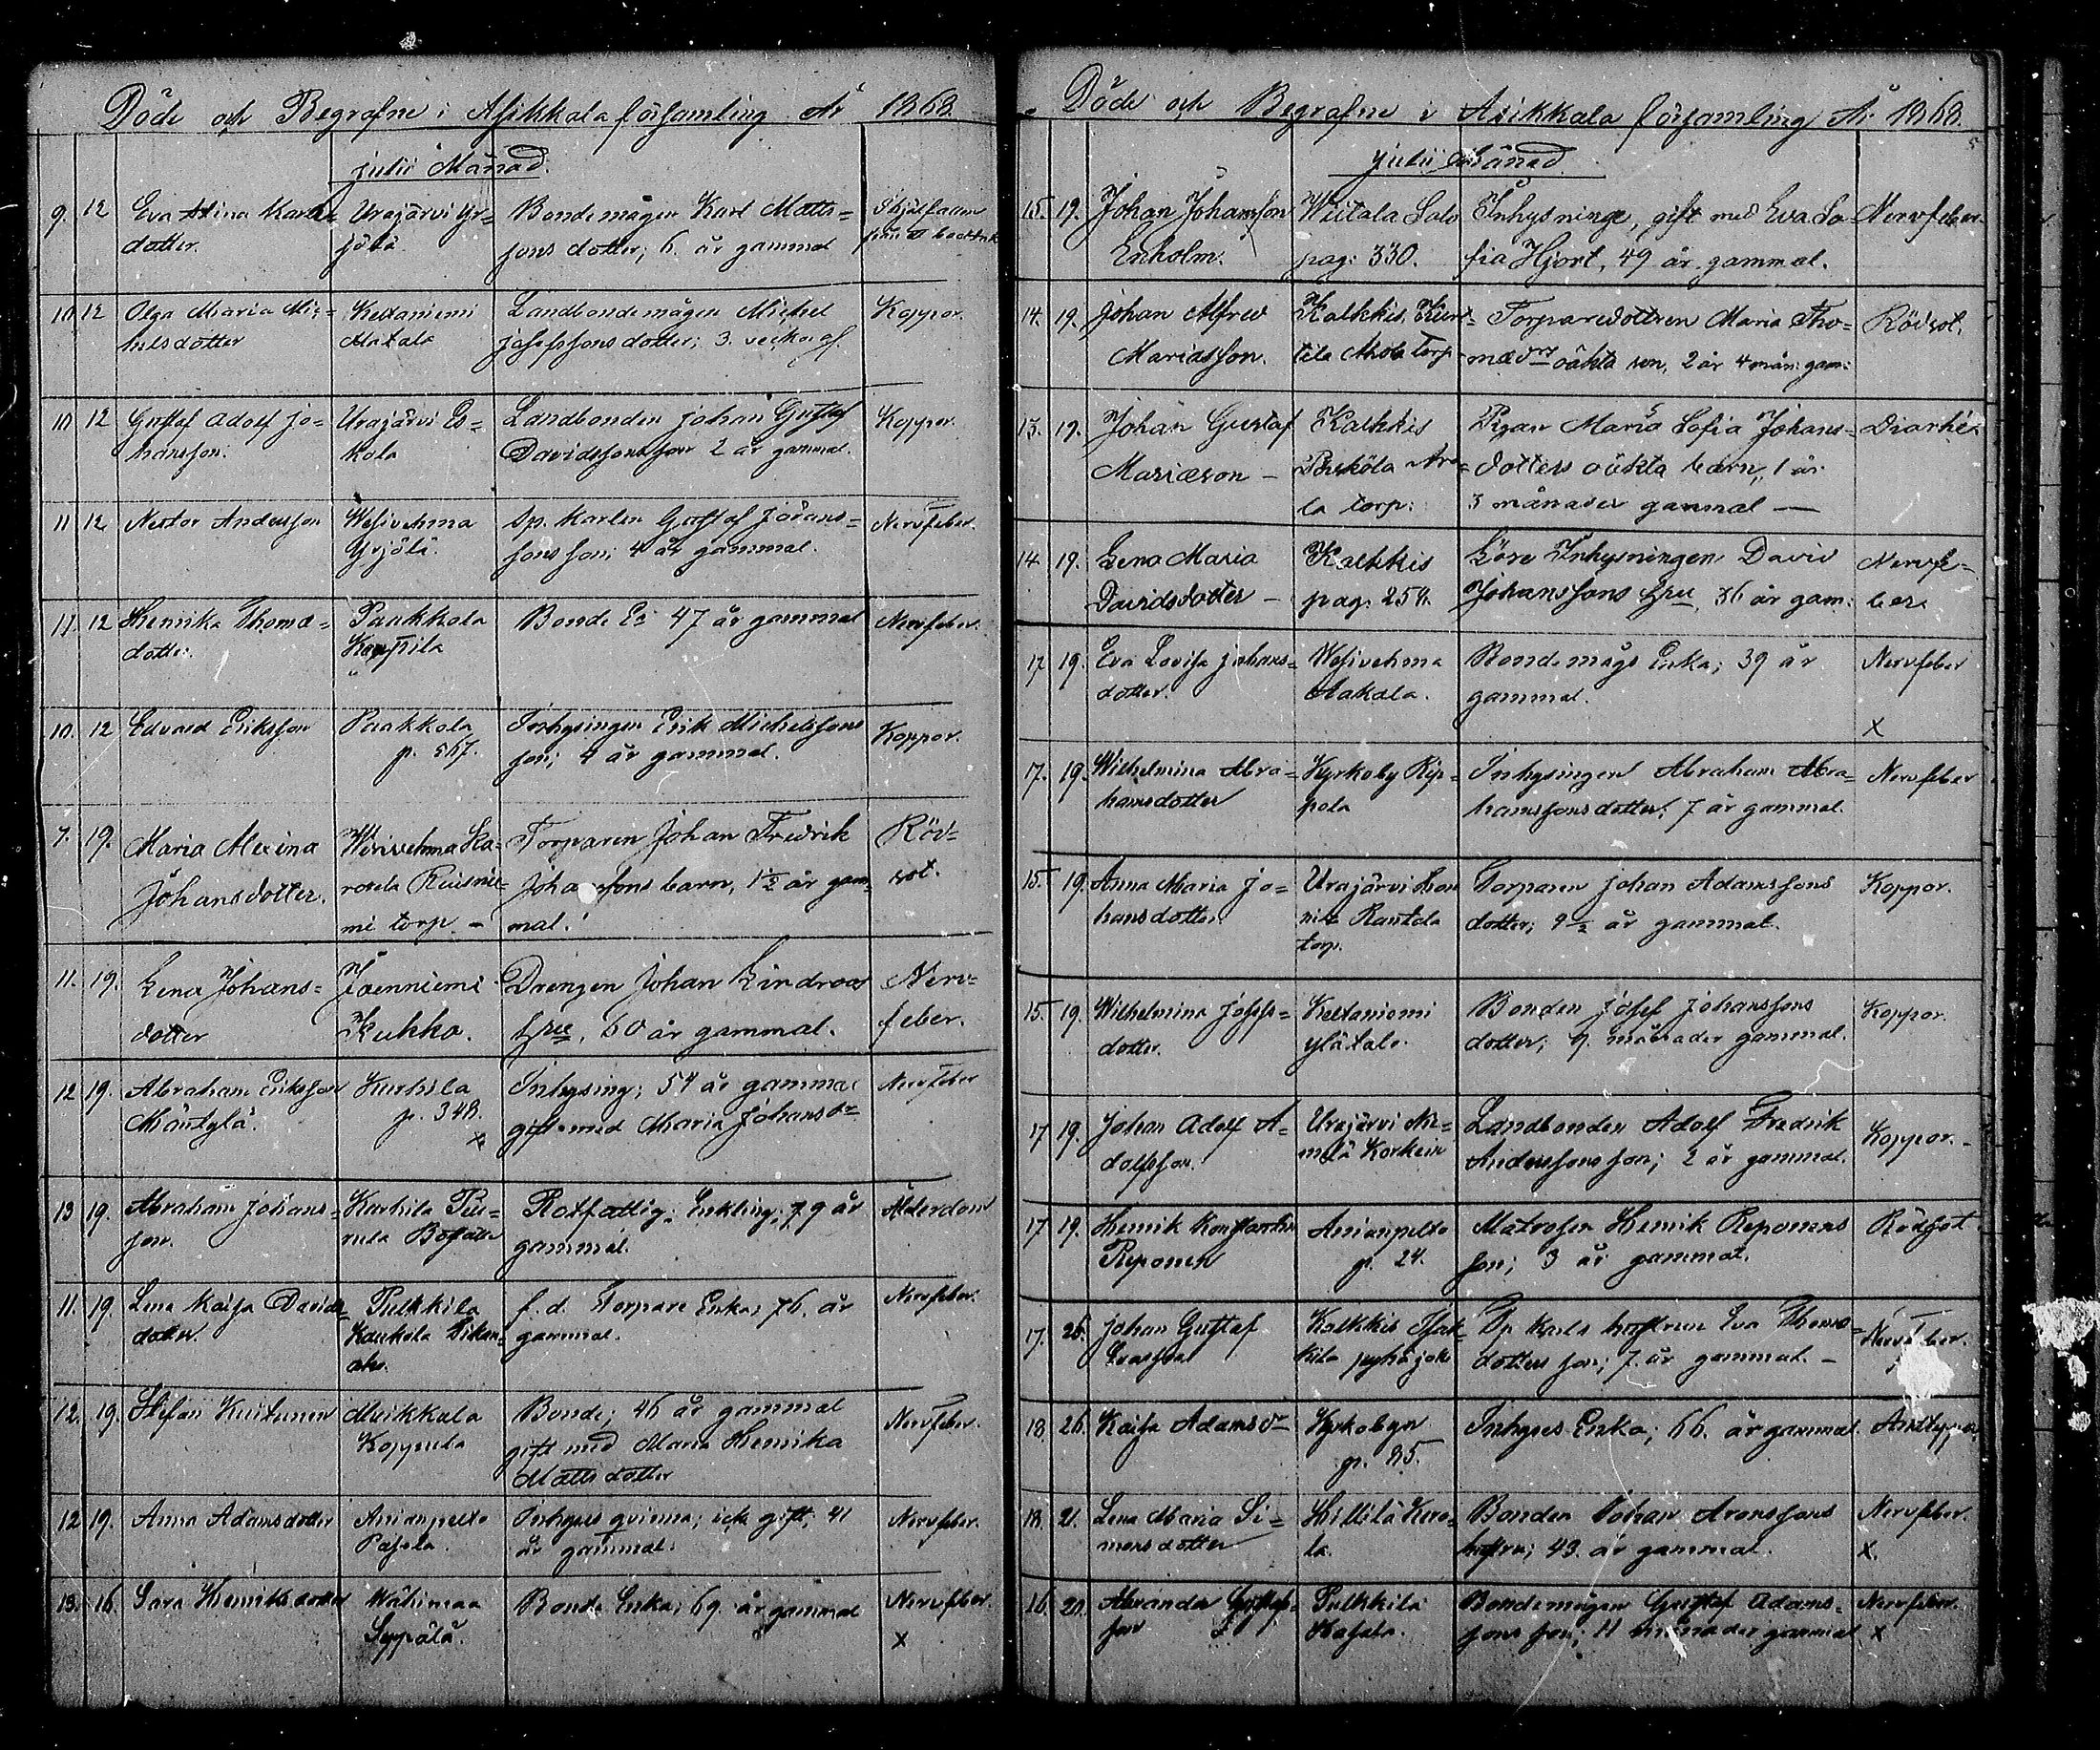 Döde och Begrafne i Asikkala församling År 1868.
julii Månad.
9. 12 Eva Stina Karls= Urajärvi Yr= Bondemågen Karl Matts=
dotter. jölä. sons dotter; 6. år gammal
10. 12 Olga Maria Mic= Keltaniemi Landbondemågen Michel Koppor.
helsdotter Matala josefssons dotter; 3. veckor gl.
10 12 Gustaf Adolf Jo= Urajärvi Es= Landbonden Johan Gustaf Koppor.
hansson. kola Davidssons son 2 år gammal.
11 12 Nestor Andersson Wesivehma Sp. Karlen Gustaf Johans= Nervfeber.
Yrjölä. sons son; 4 år gammal.
11. 12 Henrika Thomæ= Paakkola Bonde Ea 47 år gammal Nervfeber.
dotter.
10. 12 Edvard Eriksson Paakkola Inhysingen Erik Michelssons Koppor.
p. 567. son; 4 år gammal.
7. 19. Maria Alexina Wesivehma Ka= Torparen Johan Fredrik Röd=
Johansdotter. rokela Ruisnie= Johanssons barn, 1½ år gam= sot.
mi torp. – mal.
11. 19. Lena Johans= Isoniemi Drengen Johan Lindroos Nerv=
dotter Kukko. Hru, 60 år gammal. feber.
12 19. Abraham Eriksson Kurhila Inhysing; 54 år gammal Nervfeber
Mäntylä. p. 348. x gift med Maria Johansdr
13 19. Abraham Johans= Kurhila Rotfattig; Enkling; 79 år Ålderdom
son. gammal.
11. 19. Lena Kaisa Davids= Pulkkila f. d. Torpare Enka; 76. år Nervfeber.
dotter. Kaukela gammal.
12. 19. Stefan Kuitunen Muikkala Bonde; 46 år gammal Nervfeber.
Koppula gift med Maria Henrika
Mattsdotter
12 19. Anna Adamsdotter Anianpelto Inhyses qvinna; ick gift; 41 Nervfeber.
Pajola. år gammal.
13. 16. Sara Henriksdotter Wähimaa Bonde Enka; 69. år gammal Nervfeber.
Seppälä. x
Döde och Begrafne i Asikkala församling År 1868.
julii Månad.
15. 19. Johan Johansson Wiitala Salo Inhysninge, gift med Eva So= Nervfeber
Enholm. pag: 330. fia Hjort, 49 år gammal.
14. 19. Johan Alfred Kalkkis, Kurt= Torparedottren Maria Tho= Rödsot.
Mariasson. tila Ahola torp. mædrs oäkta son, 2 år 4 mån: gam:
13. 19. Johan Gustaf Kalkkis Pigan Maria Sofia Johans= Diarhé
Mariæson – dotters oäkta barn, 1 år
la torp. 3 månader gammal —
14 19. Lena Maria Kalkkis Löse Inhysningen David Nervfe=
Davidsdotter – pag: 258. Johanssons Hru, 36 år gam: ber.
17 19. Eva Lovisa Johans= Wesivehma Bondemågs Enka; 39 år Nervfeber
dotter. Aakala. gammal. x
17. 19. Wilhelmina Abra= Kyrkoby Rip= Inhysingen Abraham Abra= Nervfeber
hamsdotter pola hamssons dotter; 7 år gammal.
15. 19. Anna Maria Jo= Urajärvi Torparen Johan Adamssons Koppor.
hansdotter Rantala dotter; 9½ år gammal.
torp.
15. 19. Wilhelmina Josefs= Keltaniemi Bonden Josef Johanssons Koppor.
dotter. ylätalo. dotter; 9. månader gammal.
17 19. Johan Adolf A= Urajärvi Landbonden Adolf Fredrik Koppor.
dolfsson. Anderssons son; 2 år gammal.
17 19. Henrik Konstantin Anianpelto Matrosen Henrik Reponens Rödsot
Reponen p. 24. son; 3 år gammal.
17. 26. Johan Gustaf Kalkkis Sp Karls hustrun Eva Thomæ= Nervfeber.
Evasson dotters son; 7. år gammal. –
18. 26. Kaisa Adamsdr Kyrkobyn Inhyses Enka; 66. år gammal. Andtäppa
p. 85.
18. 21. Lena Maria Si= Hillilä Kero= Bonden Johan Aronssons Nervfeber.
monsdotter la. hustru; 43. år gammal. x.
16. 20. Pulkkila Bondemågen Gustaf Adams= Nervfeber.
son sons son; 11 månader gammal x